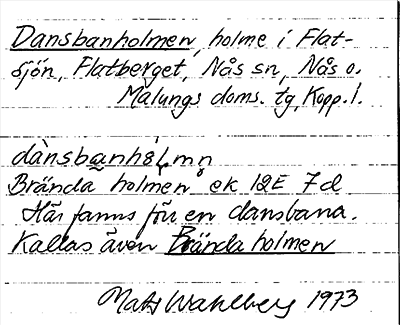 Dansbanholmen, holme i Flat-
sjön, Flatberget, Nås sn, Nås o.
Malungs doms. tg, Kopp. l.
dànsbanhålmn
Brända holmen ek 12E 7d
Här fanns förr en dansbana.
Kallas även Brända holmen
Mats Wahlberg 1973